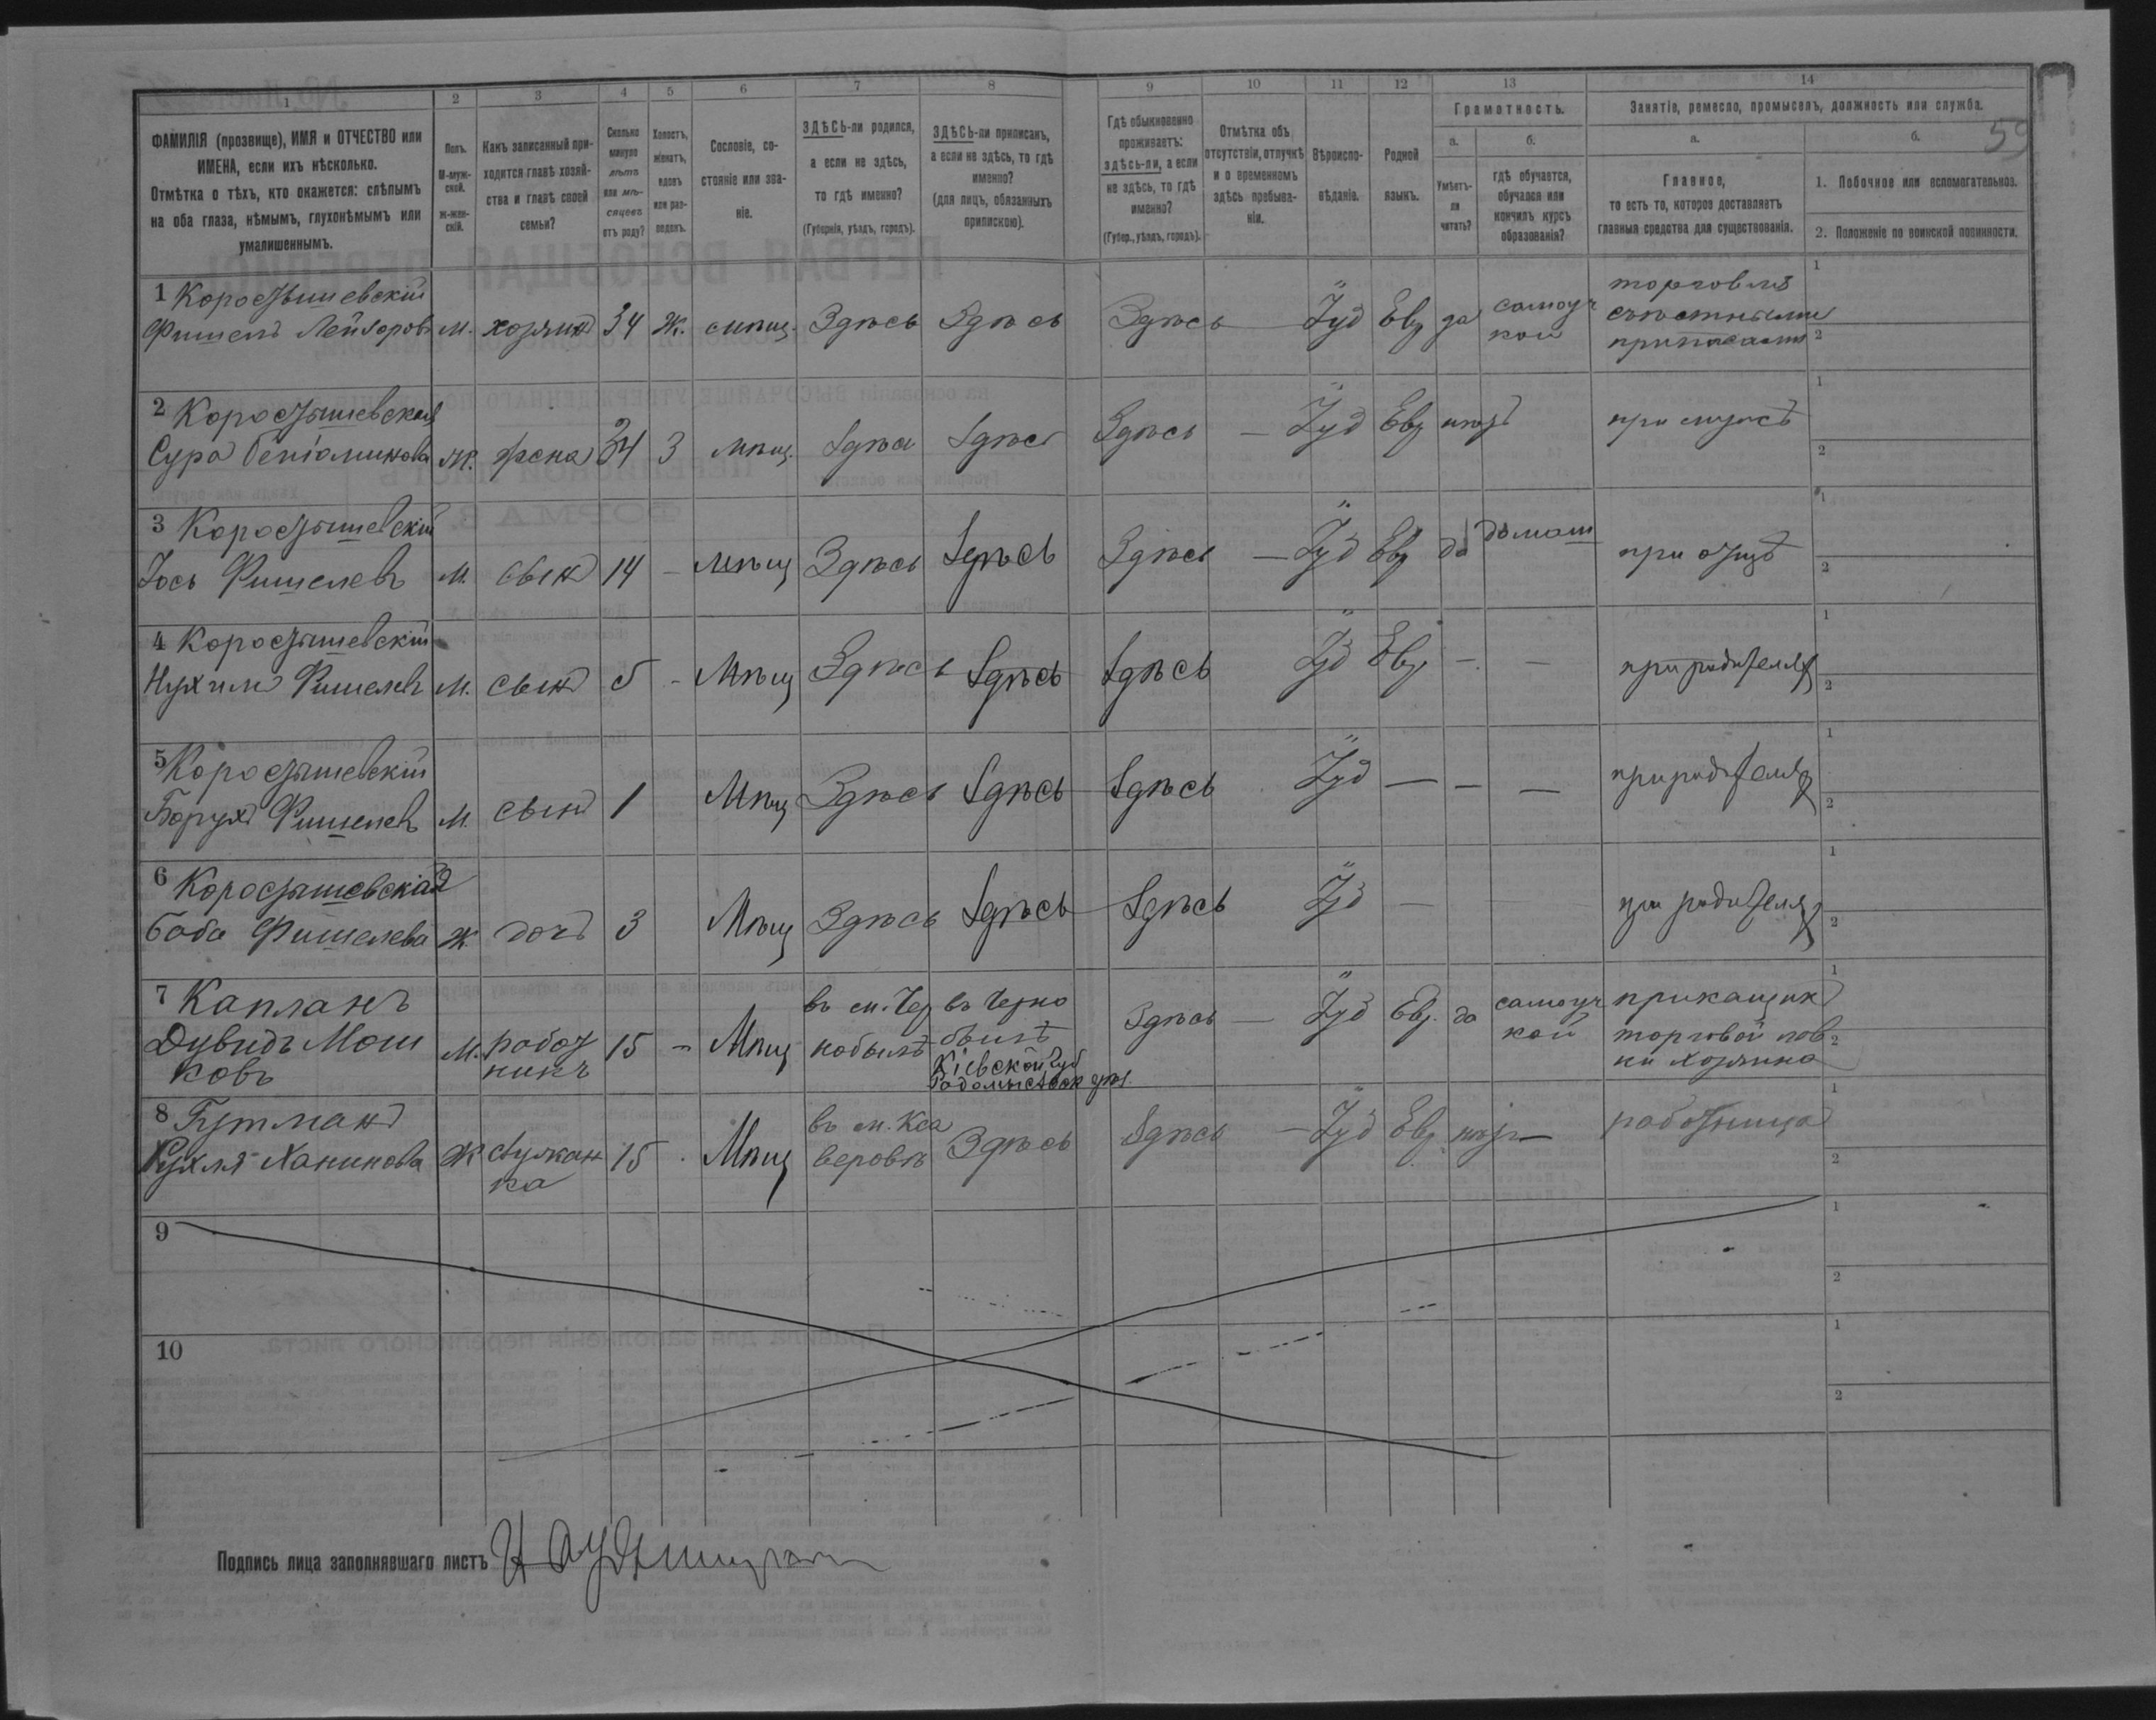 59
1 2 3 4 5 6 7 8 9 10 11 12 13 14
ФАМИЛІЯ (прозвище), ИМЯ и ОТЧЕСТВО или ИМЕНА, если ихъ нѣсколько.
Отмѣтка о тѣхъ, кто окажется: слѣпымъ на оба глаза, нѣмымъ, глухонѣмымъ или умалишеннымъ.
Полъ. М-мужской. Ж-женскій.
Какъ записанный приходится главѣ хозяйства и главѣ своей семьи?
Сколько минуло лѣтъ или мѣсяцевъ отъ роду?
Холостъ, женатъ, вдовъ или разведенъ.
Сословіе, состояніе или званіе.
ЗДѢСЬ-ли родился, а если не здѣсь, то гдѣ именно?
(Губернія, уѣздъ, городъ).
ЗДѢСЬ-ли приписанъ, а если не здѣсь, то гдѣ именно?
(для лицъ, обязанныхъ припискою).
Гдѣ обыкновенно проживаетъ: здѣсь-ли, а если не здѣсь, то гдѣ именно?
(Губер., уѣздъ, городъ).
Отмѣтка объ отсутствіи, отлучкѣ и о временномъ здѣсь пребываніи.
Вѣроисповѣданіе.
Родной языкъ.
Грамотность.
а. Умѣетъ-ли читать?
б. гдѣ обучается, обучался или кончилъ курсъ образованія?
Занятіе, ремесло, промыселъ, должность или служба.
а. Главное,
то есть то, которое доставляетъ главныя средства для существованія.
б.
1. Побочное или вспомогательное.
2. Положеніе по воинской повинности.
1 Коростышевскій
Фишель Лейзоровъ М. хозяинъ 34 Ж. мѣщ. Здѣсь Здѣсь Здѣсь Іуд Евр да самоучкой торговля съѣстными припасами 1 2
2 Коростышевская
Сура Беніаминова Ж. жена 34 З мѣщ. Здѣсь Здѣсь Здѣсь — Іуд Евр нѣтъ при мужѣ 1 2
3 Коростышевскій
Іось Фишелевъ М. сынъ 14 - мѣщ Здѣсь Здѣсь Здѣсь — Іуд Евр да домаш при отцѣ 1 2
4 Коростышевскій
Нухимъ Фишелевъ М. сынъ 5 - Мѣщ Здѣсь Здѣсь Здѣсь Іуд Евр — — при родителях 1 2
5 Коростышевскій
Борухъ Фишелевъ М. сынъ 1 Мѣщ Здѣсь Здѣсь Здѣсь Іуд — — — при родителях 1 2
6 Коростышевская
Баба Фишелева Ж дочь 3 Мѣщ Здѣсь Здѣсь Здѣсь Іуд — при родителях 1 2
7 Капланъ
Дувидъ Мош
ковъ М. работникъ 15 - Мѣщ въ м. Чернобылѣ въ Чернобылѣ
Кіевской Губ
Радомысльск уѣз. Здѣсь — Іуд Евр. да самоучкой прикащикъ
торговой лавки хозяина 1 2
8 Гутманъ
Рухля Ханинова Ж служанка 15 Мѣщ въ м. Ксаверовѣ Здѣсь Здѣсь — Іуд Евр нѣтъ — работница 1 2
9 1 2
10 1 2
Подпись лица заполнявшаго листъ